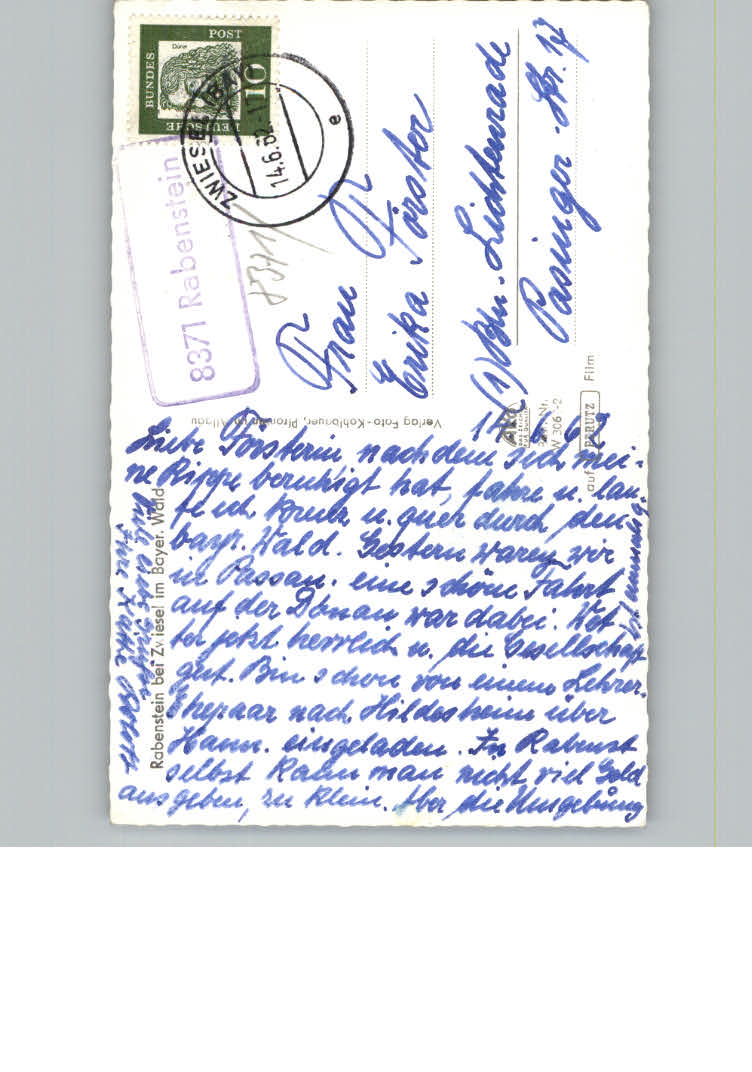 DEUTSCHE
BUNDES
POST
Dürer
10
ZWIESEL (BAY
14.6.62.-17
e
8371 Rabenstein
8371
Frau
Erika Förster
(1) Bln.-Lichtenrade
Pasinger Str. 17
Verlag Foto-Kohlbauer, Pfronten im Allgäu
Rabenstein bei Zwiesel im Bayer. Wald
AKO
DAS ZEICHEN
FÜR QUALITÄT
W 306
auf PERUTZ Film
6. 62
Liebe Försterin nachdem sich mei-
ne Rippe beruhigt hat, fahre u. lau-
fe ich kreuz u. quer durch den
bayr. Wald. Gestern waren wir
in Passau. eine schöne Fahrt
auf der Donau war dabei. Wet
ter jetzt herrlich u. die Gesellschaft
gut. Bin schon von einem Lehrer-
Ehepaar nach Hildesheim über
Hann. eingeladen. In Rabenst
selbst kann man nicht viel Geld
ausgeben, zu klein. Aber die Umgebung
ist einmalig.